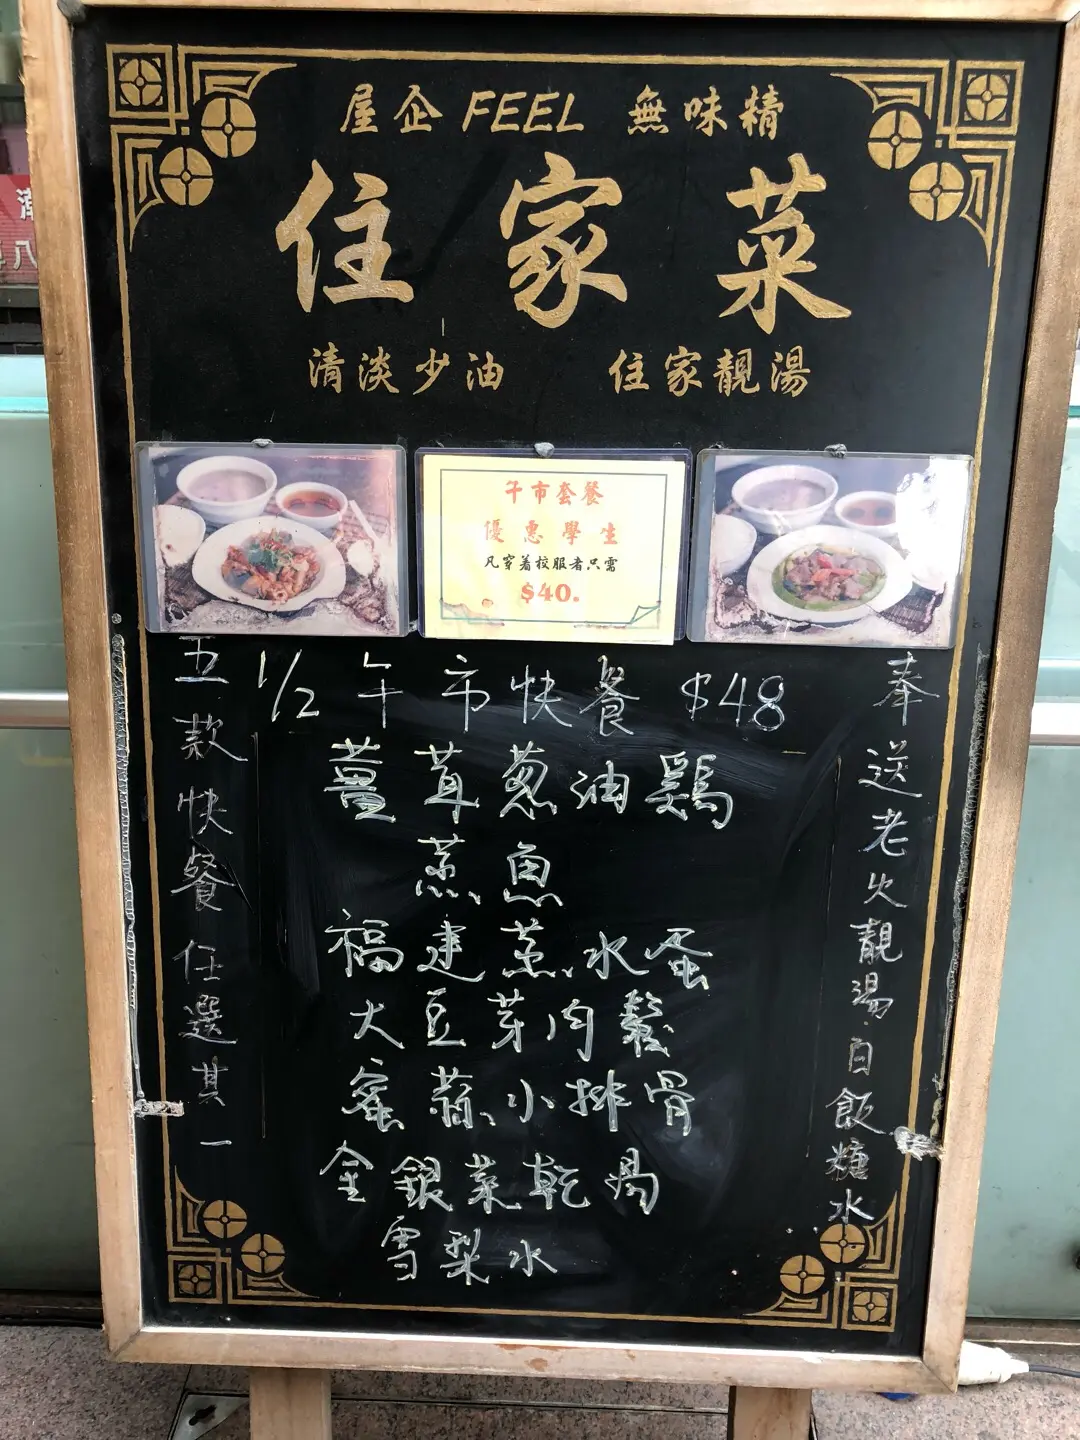 屋企 FEEL 無味精
住家菜
清淡少油 住家靚湯
午市套餐
優惠學生
凡穿着校服者只需
$40.
五款快餐任選其一
1/2 午市快餐 $48
薑茸葱油鷄
蒸魚
福建蒸水蛋
大豆芽肉鬆
蜜蒜小排骨
金銀菜乾湯
雪梨水
奉送老火靚湯白飯糖水